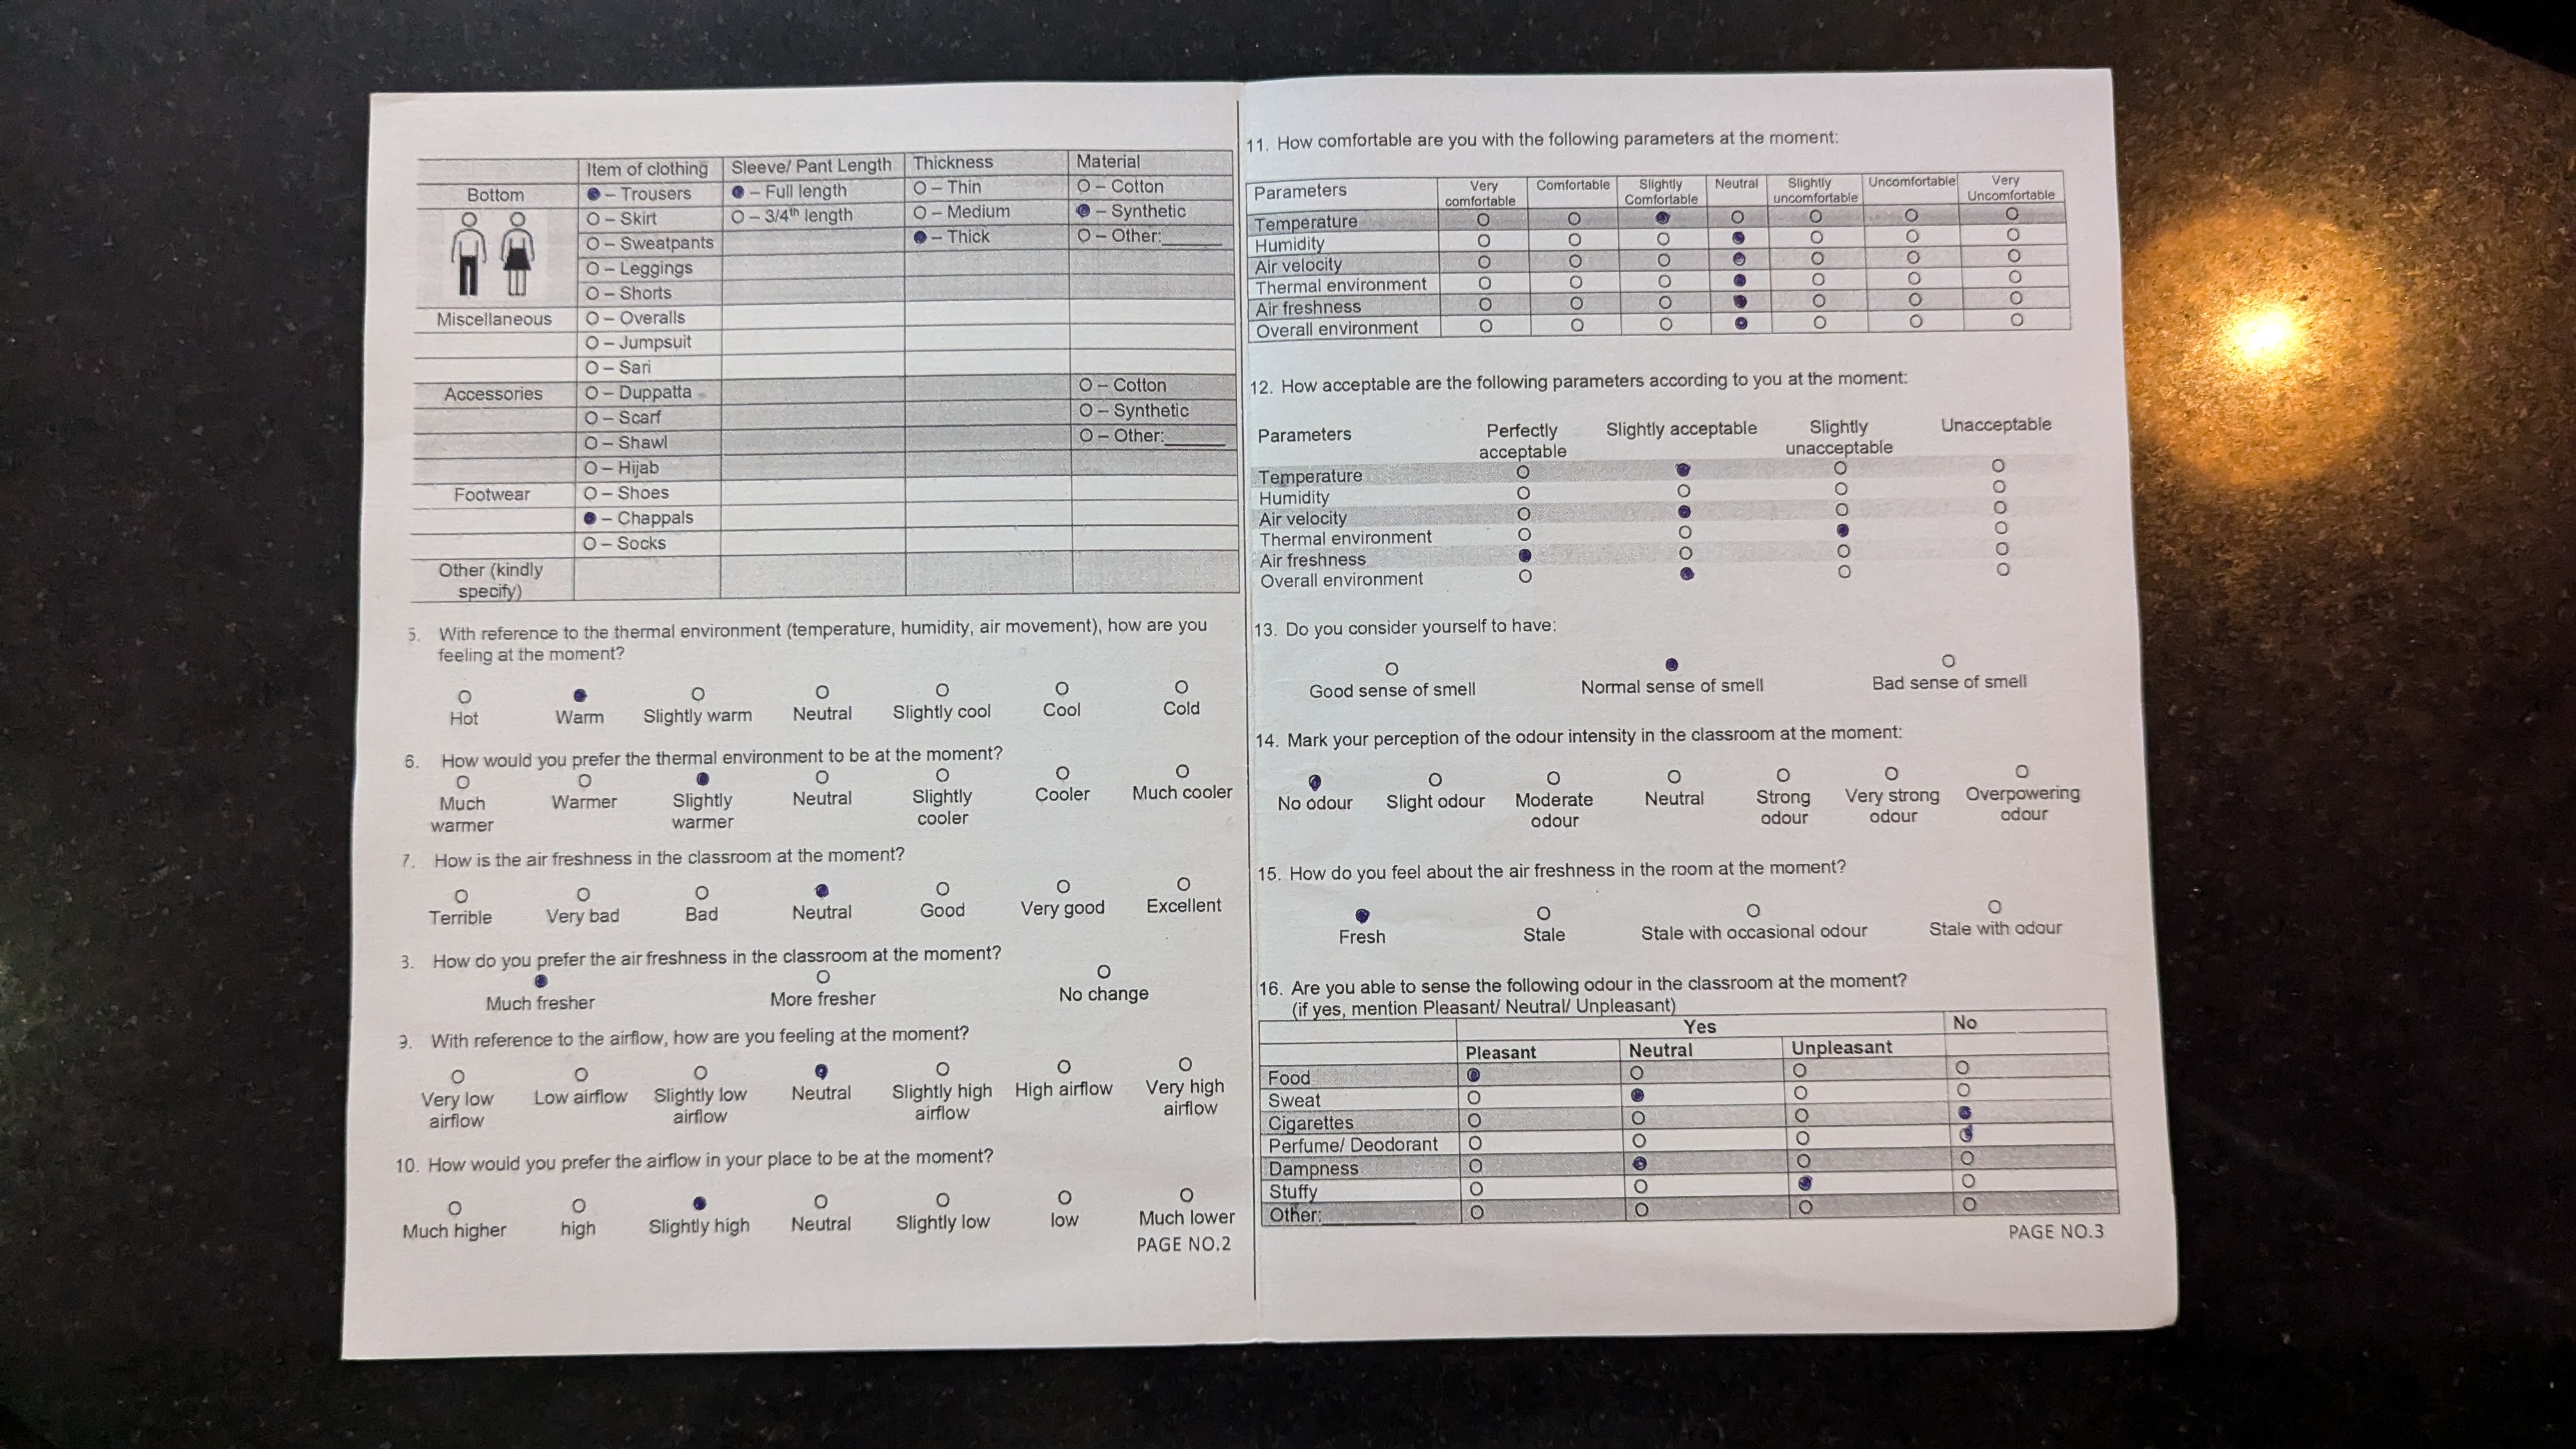 Item of clothing Sleeve/ Pant Length Thickness Material
Bottom ● – Trousers ● – Full length O – Thin O – Cotton
O – Skirt O – 3/4th length O – Medium ● – Synthetic
O – Sweatpants ● – Thick O – Other:______
O – Leggings
O – Shorts
Miscellaneous O – Overalls
O – Jumpsuit
O – Sari
Accessories O – Duppatta O – Cotton
O – Scarf O – Synthetic
O – Shawl O – Other:______
O – Hijab
Footwear O – Shoes
● – Chappals
O – Socks
Other (kindly
specify)
5. With reference to the thermal environment (temperature, humidity, air movement), how are you
feeling at the moment?
O ● O O O O O
Hot Warm Slightly warm Neutral Slightly cool Cool Cold
6. How would you prefer the thermal environment to be at the moment?
O O ● O O O O
Much Warmer Slightly Neutral Slightly Cooler Much cooler
warmer warmer cooler
7. How is the air freshness in the classroom at the moment?
O O O ● O O O
Terrible Very bad Bad Neutral Good Very good Excellent
3. How do you prefer the air freshness in the classroom at the moment?
● O O
Much fresher More fresher No change
9. With reference to the airflow, how are you feeling at the moment?
O O O ● O O O
Very low Low airflow Slightly low Neutral Slightly high High airflow Very high
airflow airflow airflow airflow
10. How would you prefer the airflow in your place to be at the moment?
O O ● O O O O
Much higher high Slightly high Neutral Slightly low low Much lower
PAGE NO.2
11. How comfortable are you with the following parameters at the moment:
Parameters Very Comfortable Slightly Neutral Slightly Uncomfortable Very
comfortable Comfortable uncomfortable Uncomfortable
Temperature O O ● O O O O
Humidity O O O ● O O O
Air velocity O O O ● O O O
Thermal environment O O O ● O O O
Air freshness O O O ● O O O
Overall environment O O O ● O O O
12. How acceptable are the following parameters according to you at the moment:
Parameters Perfectly Slightly acceptable Slightly Unacceptable
acceptable unacceptable
Temperature O ● O O
Humidity O O O O
Air velocity O ● O O
Thermal environment O O ● O
Air freshness ● O O O
Overall environment O ● O O
13. Do you consider yourself to have:
O ● O
Good sense of smell Normal sense of smell Bad sense of smell
14. Mark your perception of the odour intensity in the classroom at the moment:
● O O O O O O
No odour Slight odour Moderate Neutral Strong Very strong Overpowering
odour odour odour odour
15. How do you feel about the air freshness in the room at the moment?
● O O O
Fresh Stale Stale with occasional odour Stale with odour
16. Are you able to sense the following odour in the classroom at the moment?
(if yes, mention Pleasant/ Neutral/ Unpleasant)
Yes No
Pleasant Neutral Unpleasant
Food ● O O O
Sweat O ● O O
Cigarettes O O O ●
Perfume/ Deodorant O O O ●
Dampness O ● O O
Stuffy O O ● O
Other:__________ O O O O
PAGE NO.3